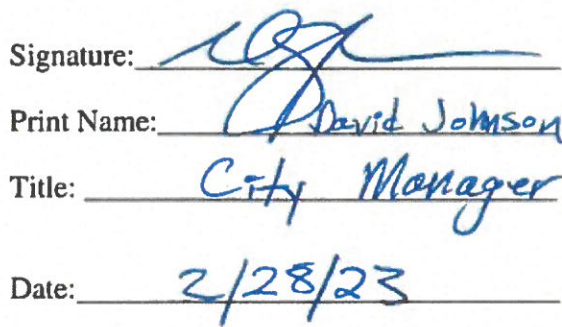 Signature:
Print Name: David Johnson
Title: City Manager
Date: 2/28/23